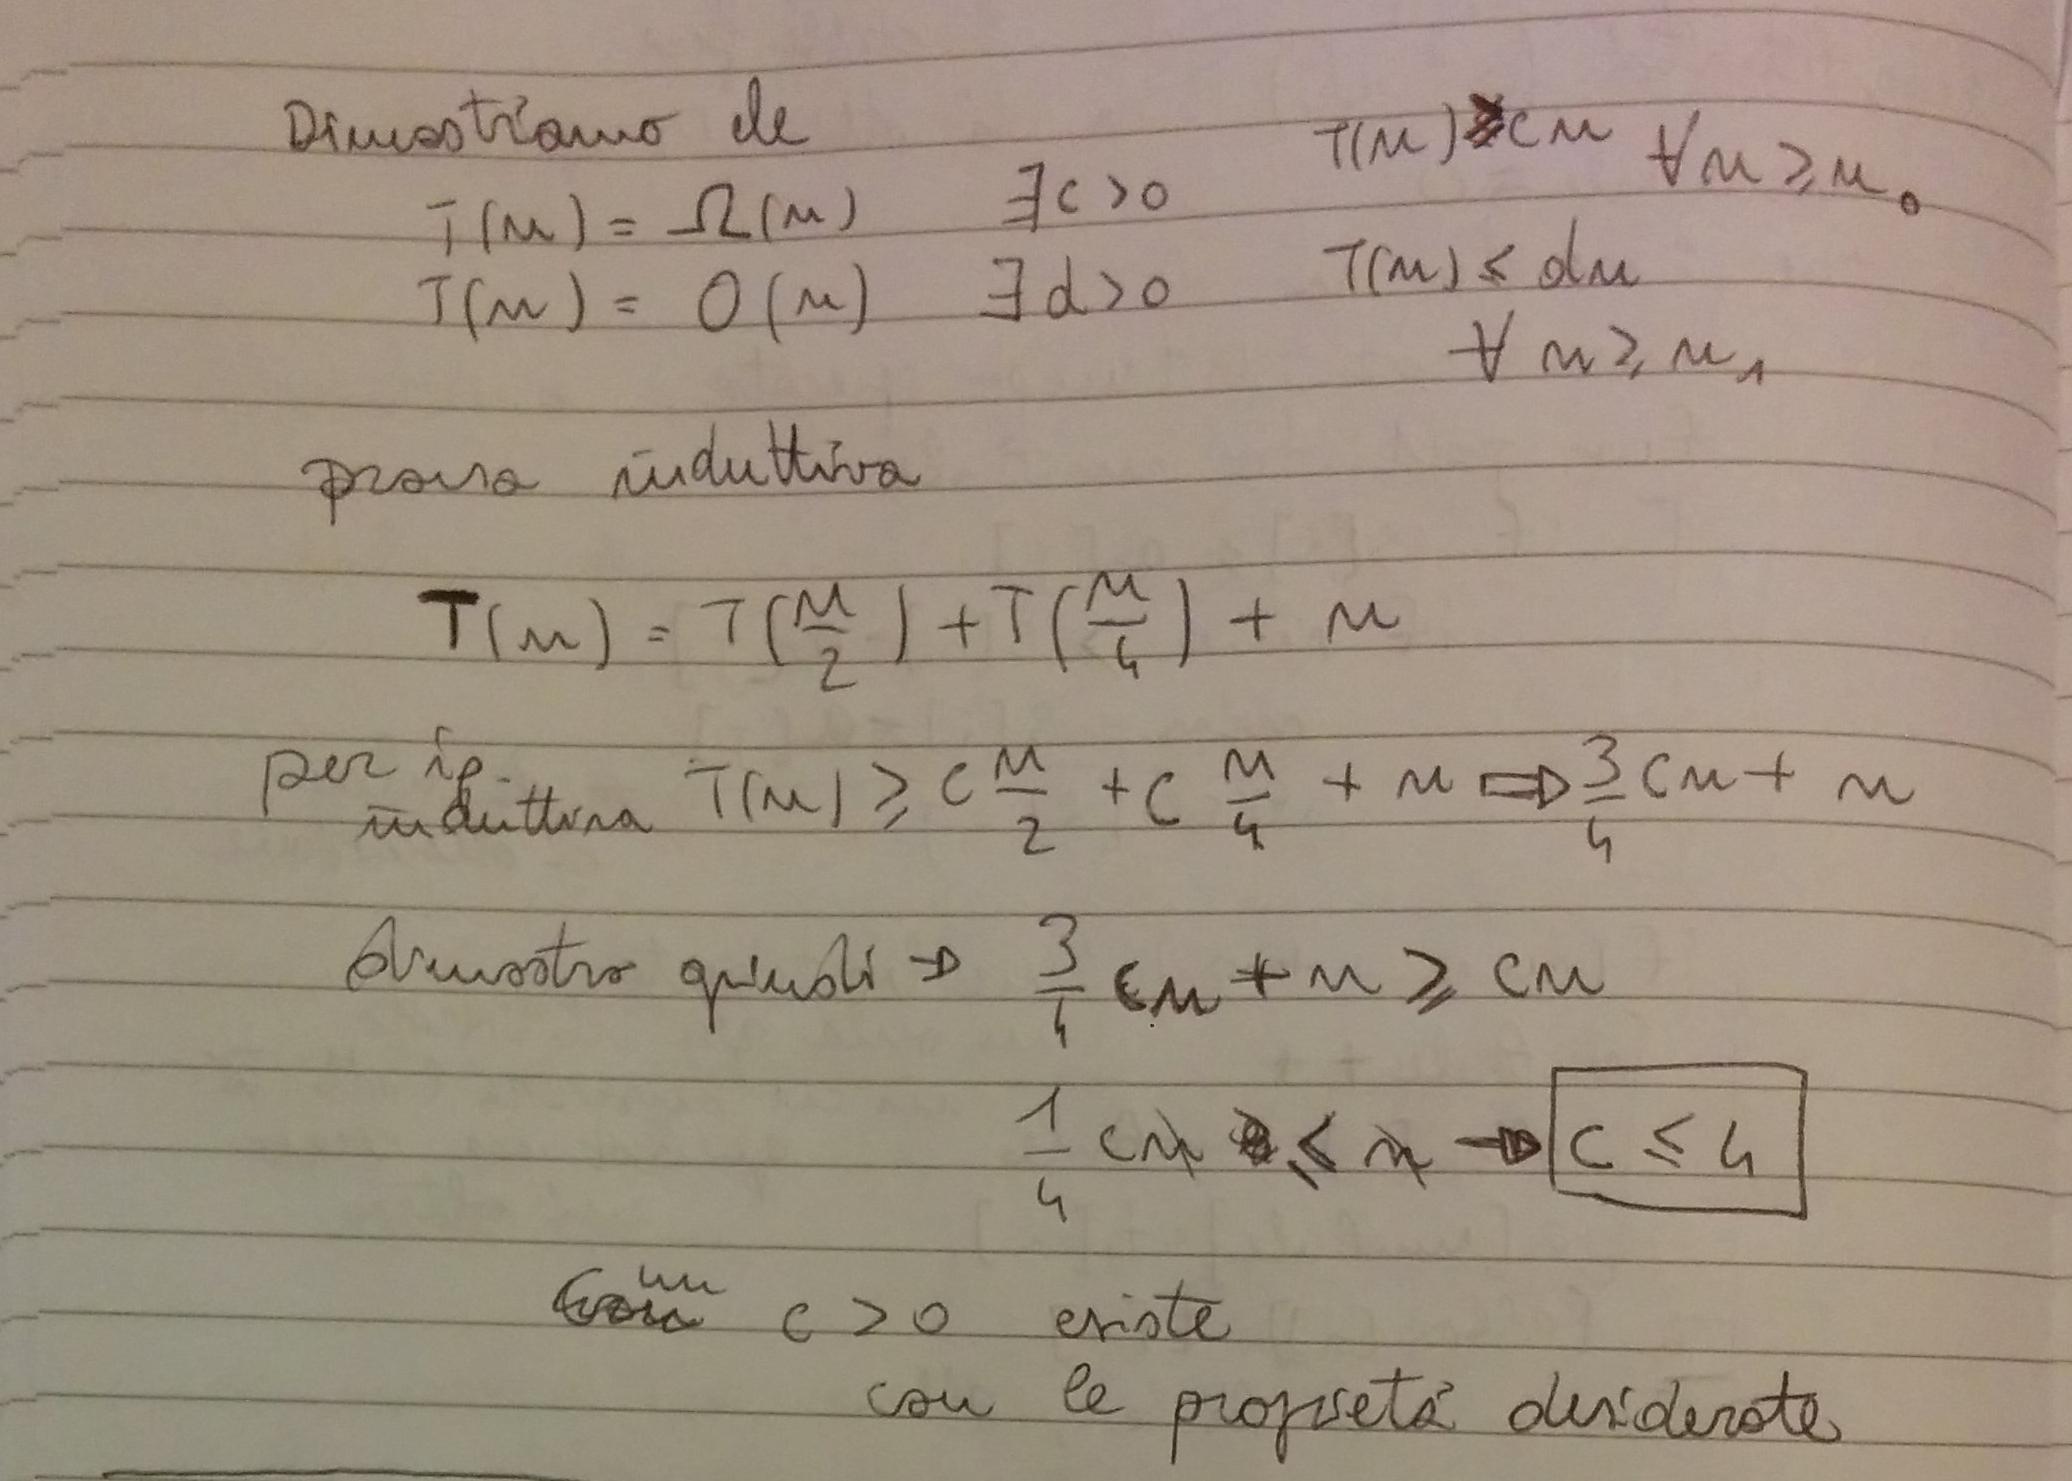 Dimostriamo che
T(n) = Ω(n) ∃c>0 T(n) ≥ cn ∀n ≥ n₀
T(n) = O(n) ∃d>0 T(n) ≤ dn
∀ n ≥ n₁
prova induttiva
T(n) = T(n/2) + T(n/4) + n
per ip. induttiva T(n) ≥ c n/2 + c n/4 + n ⇒ 3/4 cn + n
dimostro quindi → 3/4 cn + n ≥ cn
1/4 cn ≤ n → c ≤ 4
un c > 0 esiste
con le proprietà desiderate